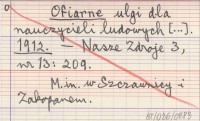 Ofiarne ulgi dla
nauczycieli ludowych [...].
1912. — Nasze Zdroje 3,
nr 13: 209.
M.in. w Szczawnicy i
Zakopanem.